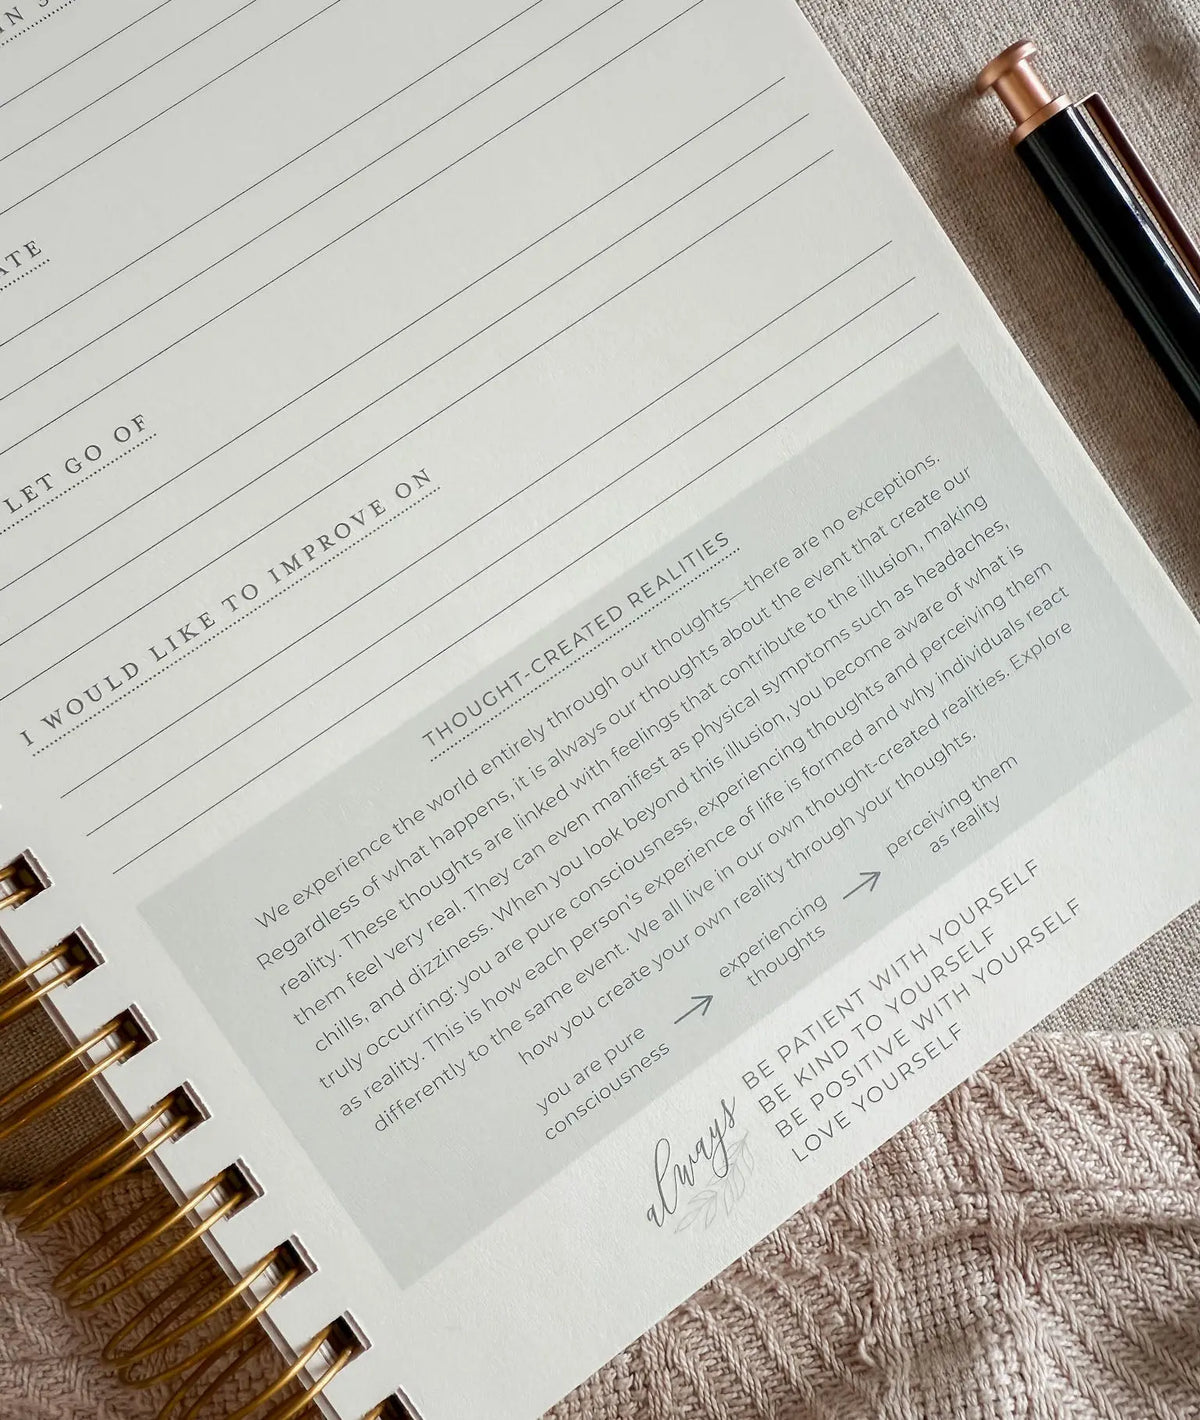 IN
LET GO OF
I WOULD LIKE TO IMPROVE ON
THOUGHT-CREATED REALITIES
We experience the world entirely through our thoughts—there are no exceptions.
Regardless of what happens, it is always our thoughts about the event that create our
reality. These thoughts are linked with feelings that contribute to the illusion, making
them feel very real. They can even manifest as physical symptoms such as headaches,
chills, and dizziness. When you look beyond this illusion, you become aware of what is
truly occurring: you are pure consciousness, experiencing thoughts and perceiving them
as reality. This is how each person's experience of life is formed and why individuals react
differently to the same event. We all live in our own thought-created realities. Explore
how you create your own reality through your thoughts.
you are pure
consciousness
→
experiencing
thoughts
→
perceiving them
as reality
always
BE PATIENT WITH YOURSELF
BE KIND TO YOURSELF
BE POSITIVE WITH YOURSELF
LOVE YOURSELF